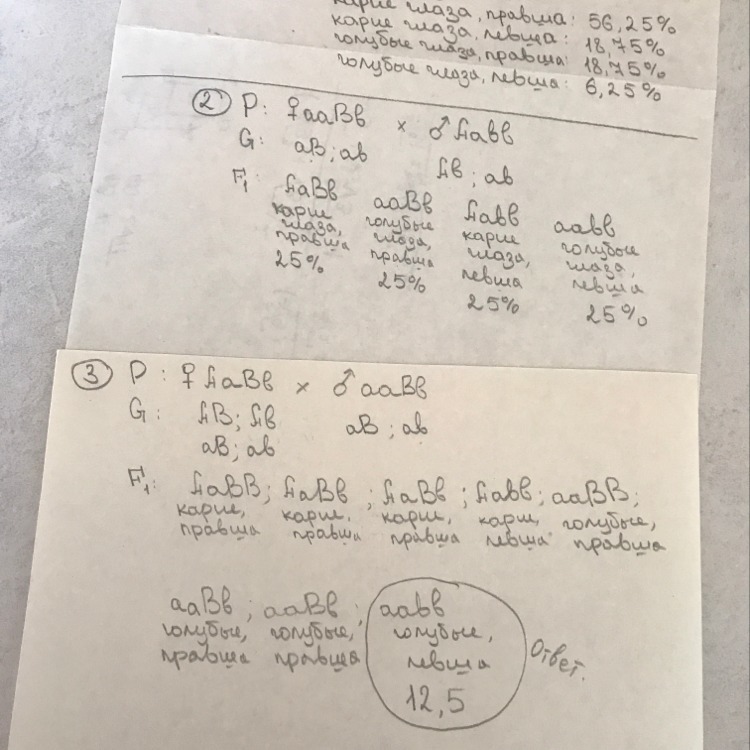 карие глаза, правша: 56,25%
карие глаза, левша: 18,75%
голубые глаза, правша: 18,75%
голубые глаза, левша: 6,25%
② P: ♀ aaBb × ♂ Aabb
G: aB; ab Ab; ab
F₁: AaBb aaBb Aabb aabb
карие голубые карие голубые
глаза, глаза, глаза, глаза,
правша правша левша левша
25% 25% 25% 25%
③ P: ♀ AaBb × ♂ aaBb
G: AB; Ab aB; ab
aB; ab
F₁: AaBB; AaBb; AaBb; Aabb; aaBB;
карие, карие, карие, карие, голубые,
правша правша правша левша правша
aaBb; aaBb; aabb
голубые, голубые, голубые,
правша правша левша
Ответ.
12,5